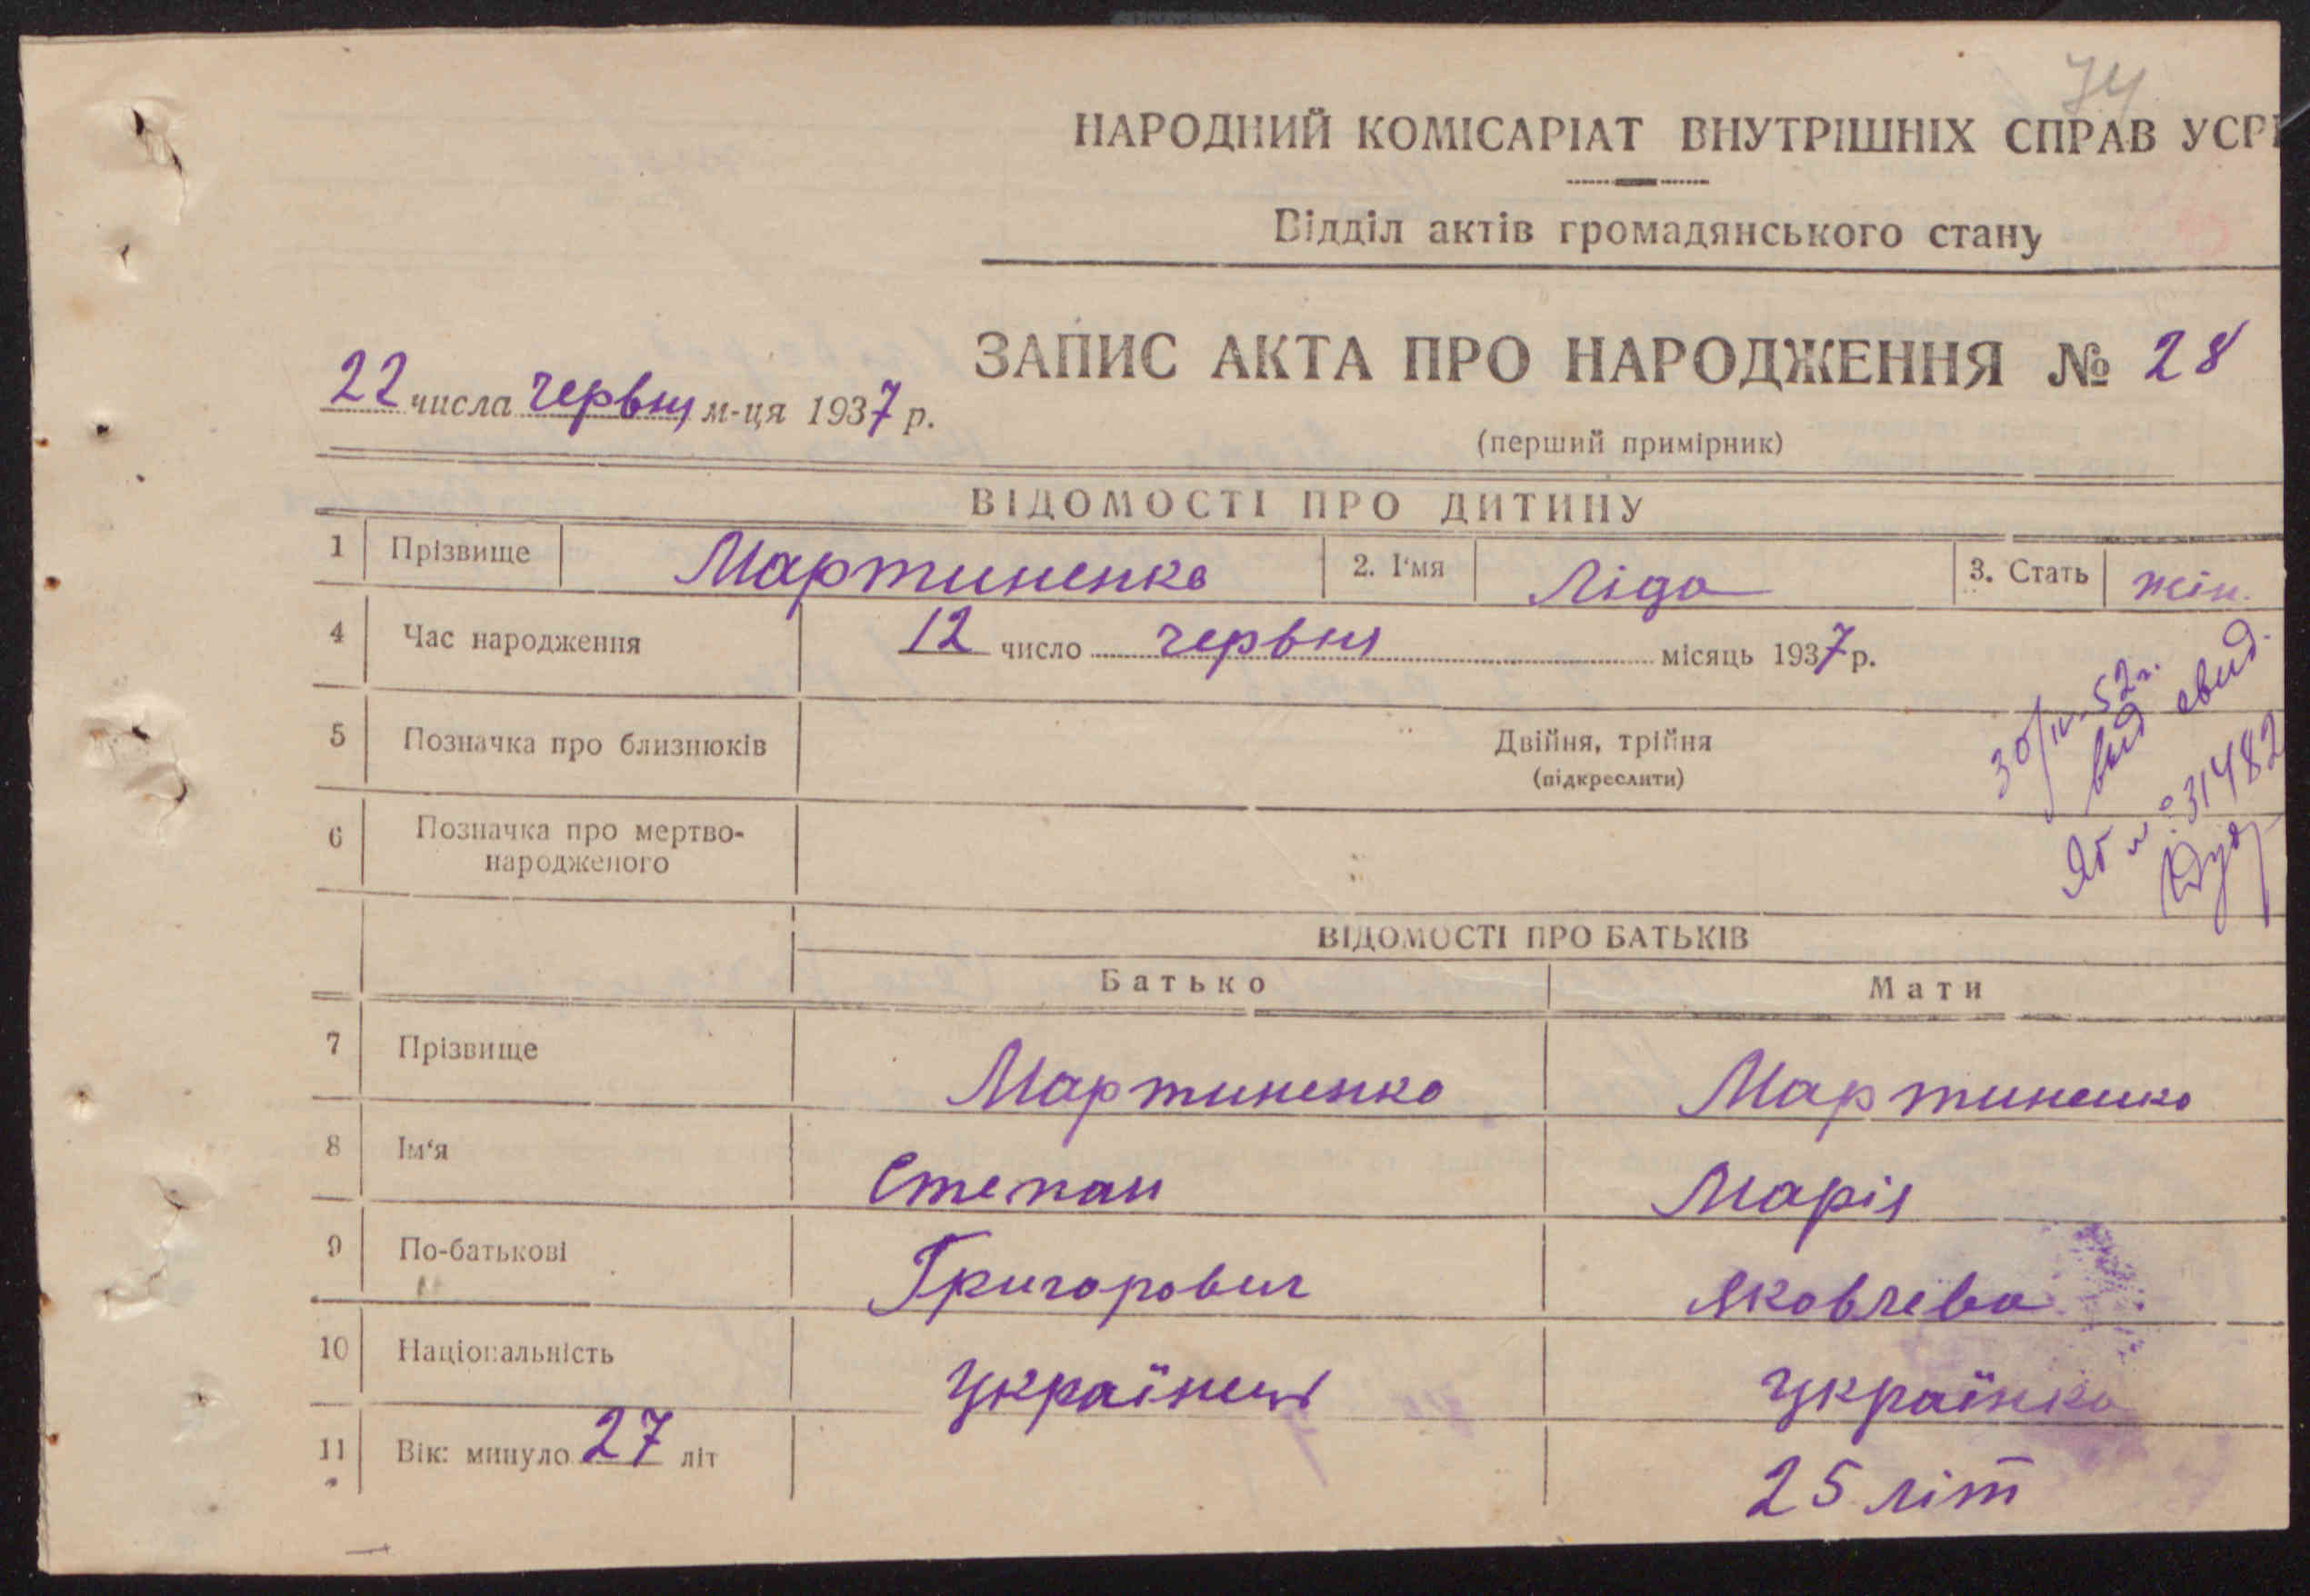 74
НАРОДНИЙ КОМІСАРІАТ ВНУТРІШНІХ СПРАВ УСР
Відділ актів громадянського стану
ЗАПИС АКТА ПРО НАРОДЖЕННЯ № 28
22 числа червня м-ця 1937 р.
(перший примірник)
ВІДОМОСТІ ПРО ДИТИНУ
1 Прізвище Мартиненко 2. І'мя Ліда 3. Стать жін.
4 Час народження 12 число червня місяць 1937 р.
5 Позначка про близнюків Двійня, трійня
(підкреслити)
30/IV-52г.
выд свид.
ЯБ № 31482
6 Позначка про мертво-
народженого
ВІДОМОСТІ ПРО БАТЬКІВ
Батько Мати
7 Прізвище Мартиненко Мартиненко
8 Ім'я Степан Марія
9 По-батькові Григорович Яковлева
10 Національність Українець Українка
11 Вік: минуло 27 літ 25 літ